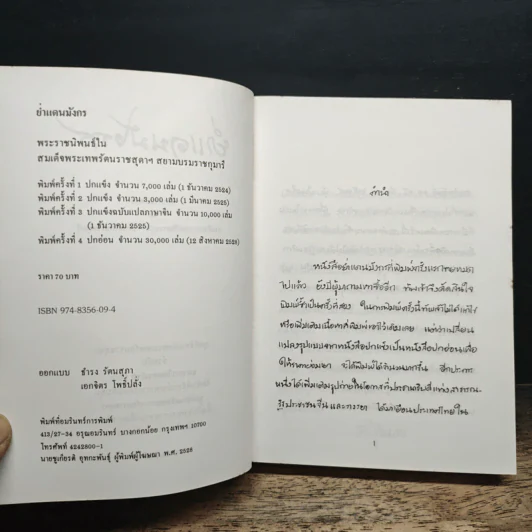 ย่ำแดนมังกร
พระราชนิพนธ์ใน
สมเด็จพระเทพรัตนราชสุดาฯ สยามบรมราชกุมารี
พิมพ์ครั้งที่ 1 ปกแข็ง จำนวน 7,000 เล่ม (1 ธันวาคม 2524)
พิมพ์ครั้งที่ 2 ปกแข็ง จำนวน 3,000 เล่ม (1 มีนาคม 2525)
พิมพ์ครั้งที่ 3 ปกแข็งฉบับแปลภาษาจีน จำนวน 10,000 เล่ม
(1 ธันวาคม 2525)
พิมพ์ครั้งที่ 4 ปกอ่อน จำนวน 30,000 เล่ม (12 สิงหาคม 2528)
ราคา 70 บาท
ISBN 974-8356-09-4
ออกแบบ ธำรง รัตนสุภา
เอกจิตร โพธิ์ปลั่ง
พิมพ์ที่อมรินทร์การพิมพ์
413/27-34 อรุณอมรินทร์ บางกอกน้อย กรุงเทพฯ 10700
โทรศัพท์ 4242800-1
นายชูเกียรติ อุทกะพันธุ์ ผู้พิมพ์ผู้โฆษณา พ.ศ. 2528
คำนำ
หนังสือย่ำแดนมังกรที่พิมพ์ครั้งแรก
ไปแล้ว ยังมีผู้มาถามหาซื้ออีก ข้าพเจ้าจึงตัดสินใจ
พิมพ์ซ้ำเป็นครั้งที่สอง ในการพิมพ์ครั้งนี้ข้าพเจ้าไม่ได้แก้ไข
หรือเพิ่มเติมเนื้อหาที่พิมพ์เอาไว้เดิมเลย แต่ว่าเปลี่ยน
แปลงรูปแบบจากหนังสือปกแข็งเป็นหนังสือปกอ่อนเพื่อ
ให้ราคาย่อมเยา จะได้พิมพ์ได้จำนวนมากขึ้น อีกประการ
หนึ่งได้เพิ่มเติมรูปถ่ายในโอกาสที่ประธานาธิบดีแห่งสาธารณ
รัฐประชาชนจีนและภรรยา ได้มาเยือนประเทศไทยใน
1